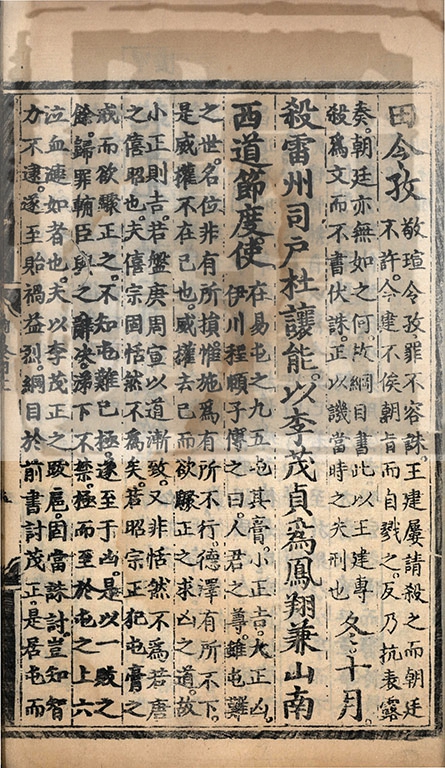 田令孜
敬瑄令孜罪不容誅。王建屢請殺之而朝廷
不許。今建不俟朝旨而自戮之。反乃抗表露
奏。朝廷亦無如之何。故綱目書此以王建專
殺爲文而不書伏誅。正以譏當時之失刑也
冬。十月。
殺雷州司戶杜讓能。以李茂貞爲鳳翔兼山南
西道節度使
在易屯之九五屯其膏。小正吉。大正凶。
伊川程頤子傳之曰。人君之尊。雖屯難
之世。名位非有所損。惟施爲有所不行。德澤有所不下。
是威權不在己也。威權去己而欲驟正之求凶之道。故
小正則吉。若盤庚周宣以道漸致。又非恬然不爲若唐
之僖昭也。夫僖宗固恬然不爲矣。若昭宗正犯屯膏之
戒而欲驟正之。不知屯難已極。遂至于凶。是以一敗之
餘。歸罪輔臣與之辭決。涕下不禁。極而至於屯之上六
泣血漣如者也。夫以李茂正之跋扈固當誅討。豈知智
力不逮。遂至貽禍益烈。綱目於前書討茂正。是居屯而